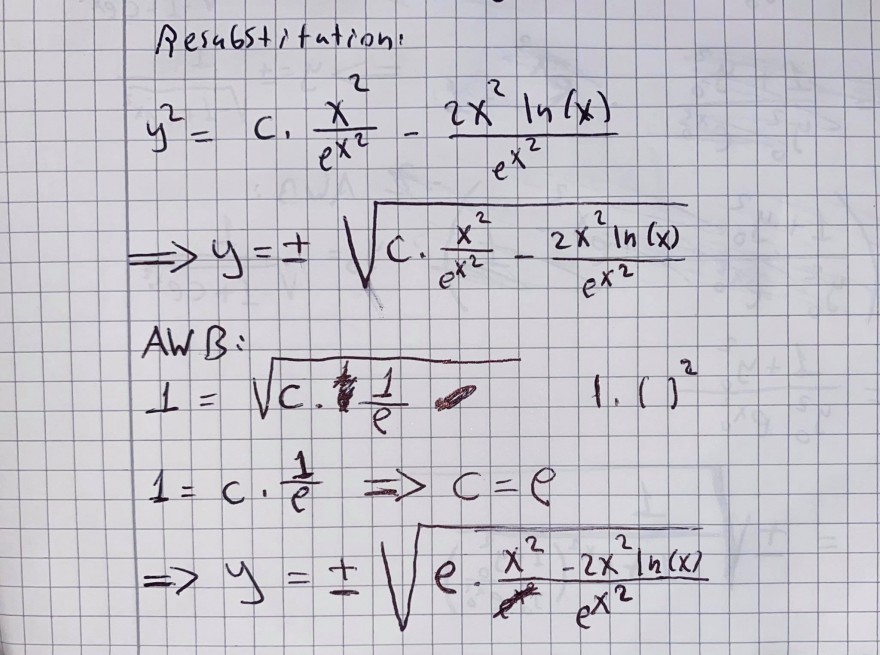 Resubstitution:
y² = c · x²/e^x² - 2x² ln(x)/e^x²
⟹ y = ± √(c · x²/e^x² - 2x² ln(x)/e^x²)
AWB:
1 = √(c · 1/e) |·( )²
1 = c · 1/e => c = e
=> y = ± √(e · x² - 2x² ln(x)/e^x²)